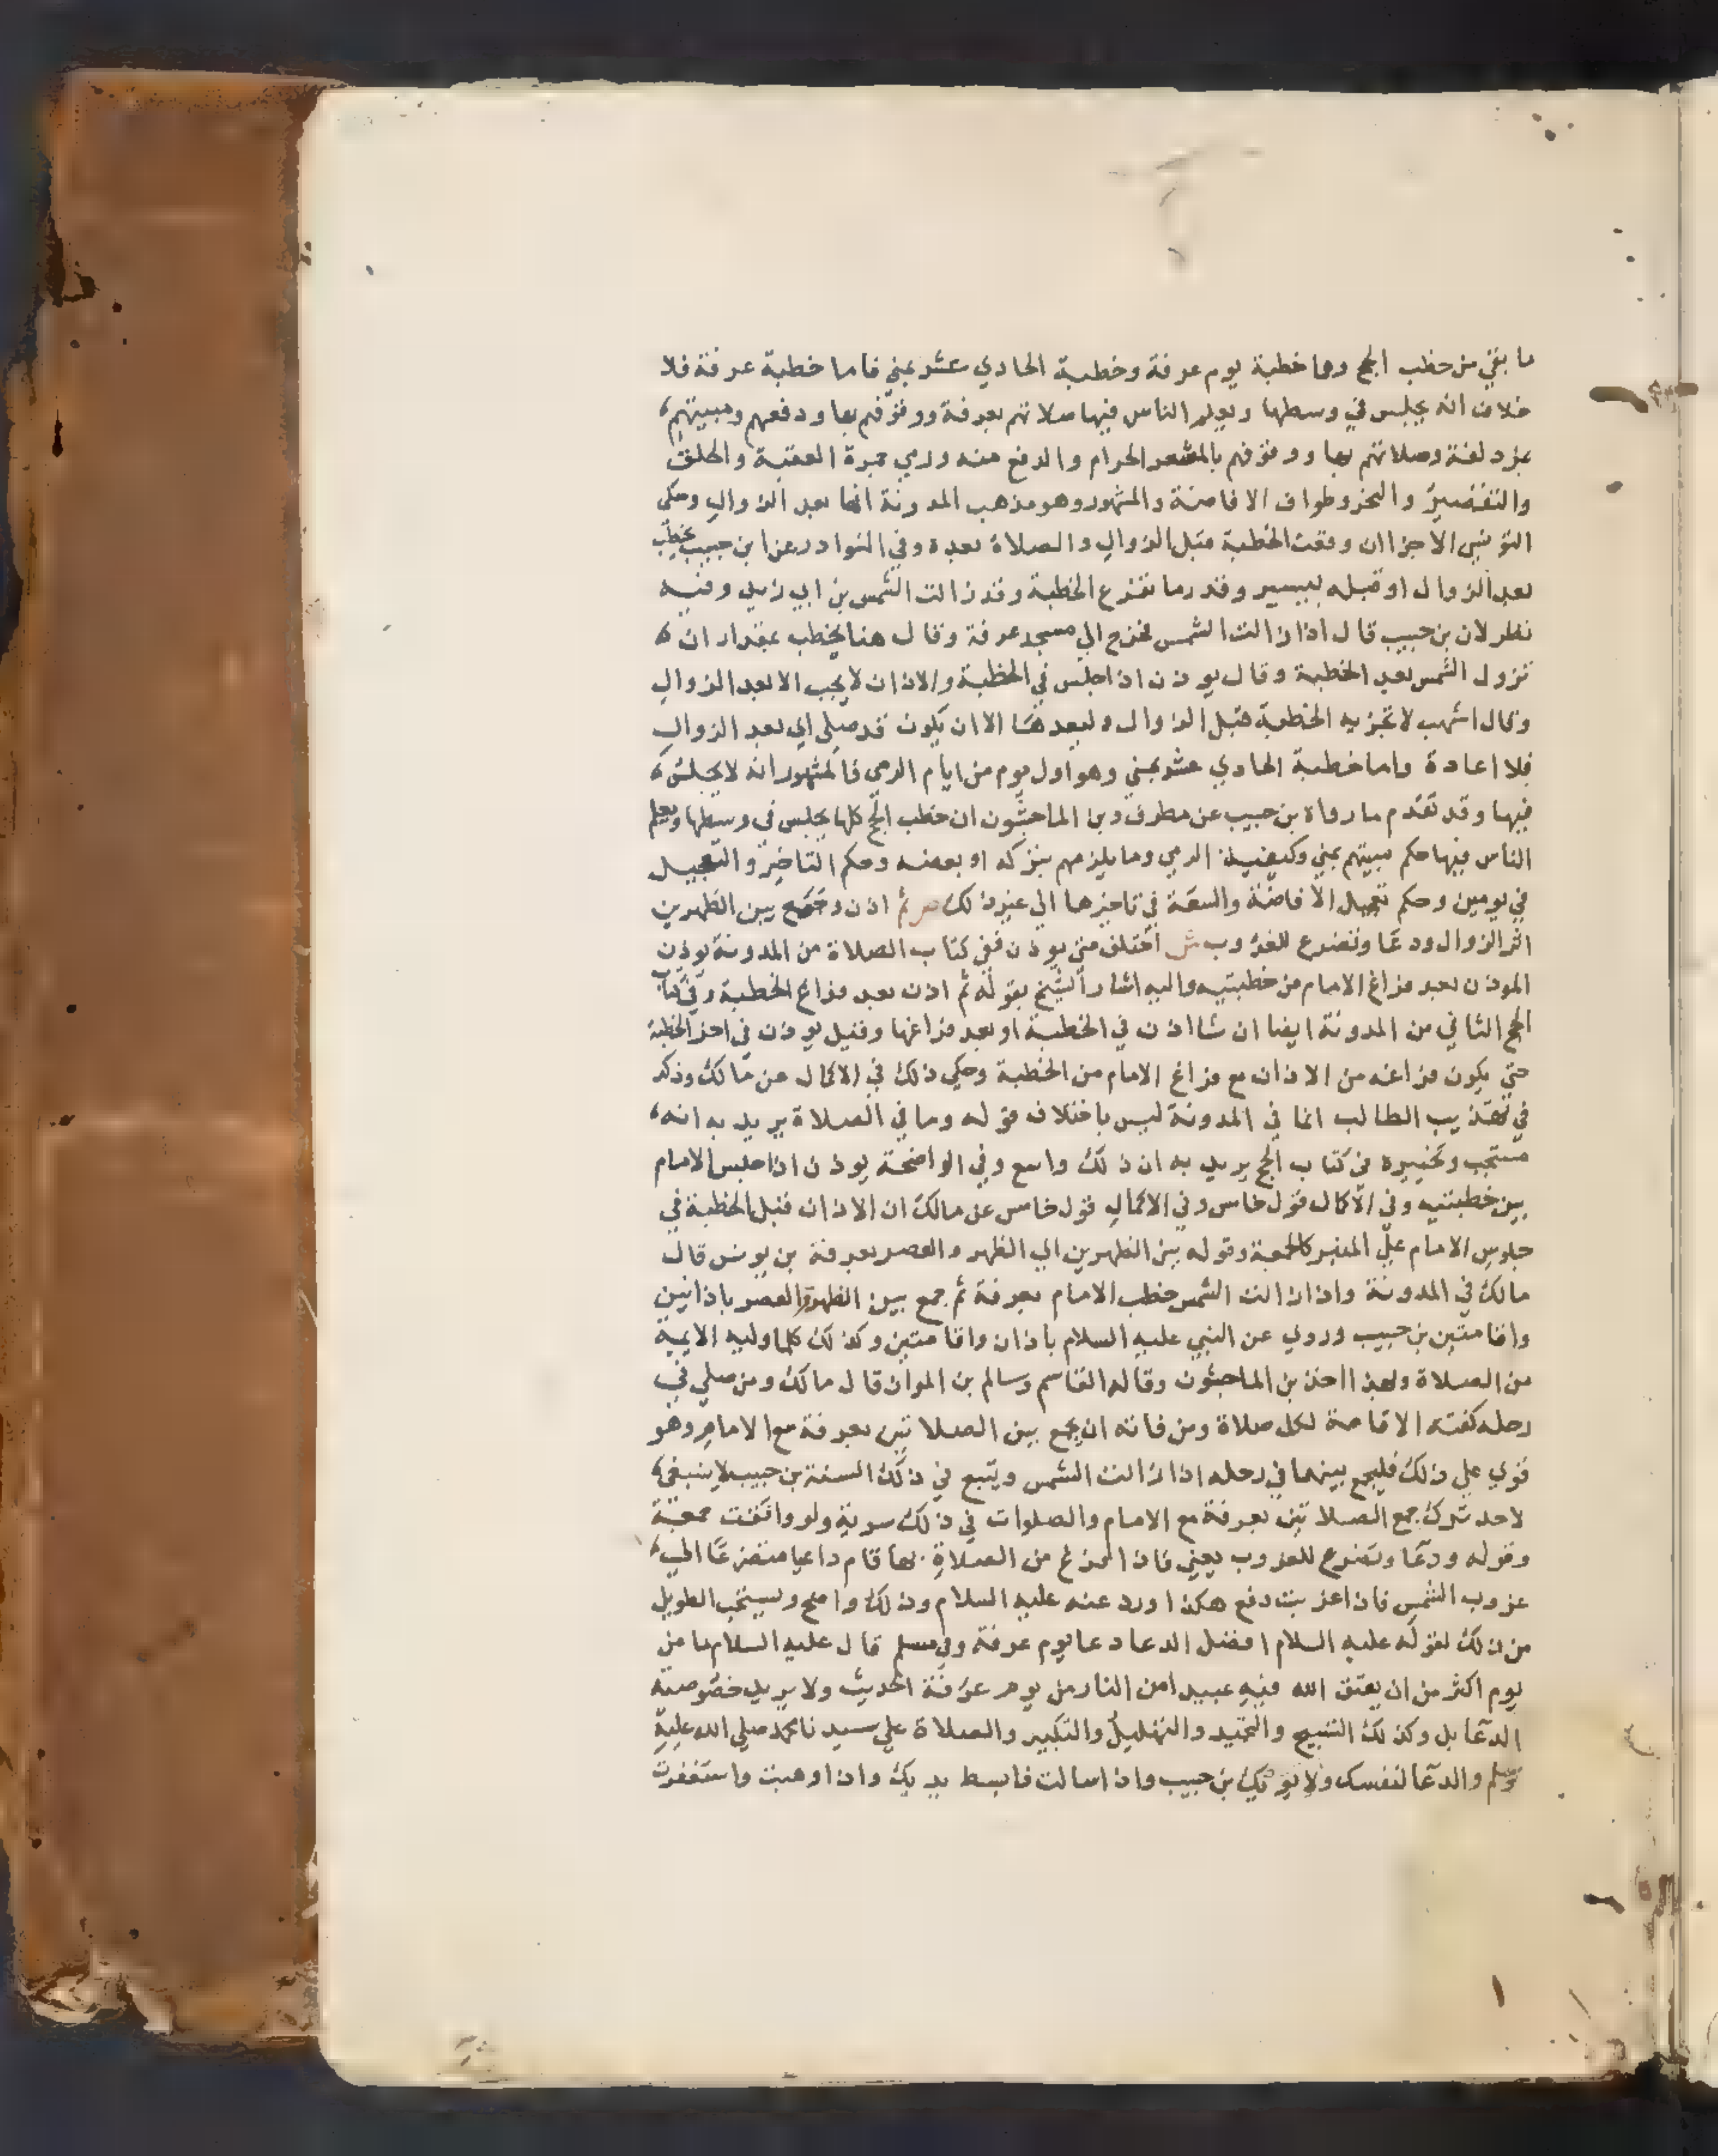 ما بقي من خطب الحج وهما خطبة يوم عرفة وخطبة الحادي عشر بمني فاما خطبة عرفة فلا
خلاف انه يجلس في وسطها ويعلم الناس فيها صلاتهم بعرفة ووقوفهم بها ودفعهم ومبيتهم
بمزدلفة وصلاتهم بها ووقوفهم بالمشعر الحرام والدفع منه ورمي جمرة العقبة والحلق
والتقصير والنحر وطواف الافاضة والمشهور وهو مذهب المدونة انها بعد الزوال وحكي
التونسي الاجزا ان وقعت الخطبة قبل الزوال والصلاة بعده وفي النوادر عن ابن حبيب يخطب
بعد الزوال او قبله بيسير وقدر ما تفرغ الخطبة وقد زالت الشمس بن ابي زيد وفيه
نظر لان بن حبيب قال اذا زالت الشمس فخرج الي مسجد عرفة وقال هنا يخطب بمقدار ان
تزول الشمس بعد الخطبة وقال يوذن اذا جلس في الخطبة والاذان لا يجب الا بعد الزوال
وقال اشهب لا تجزيه الخطبة قبل الزوال وليعدها الا ان يكون قد صلي اي بعد الزوال
فلا اعادة واما خطبة الحادي عشر بمني وهو اول يوم من ايام الرمي فالمشهور انه لا يجلس
فيها وقد تقدم ما رواه بن حبيب عن مطرف وبن الماجشون ان خطب الحج كلها يجلس في وسطها ويعلم
الناس فيها حكم مبيتهم بمني وكيفية الرمي وما يلزمهم بتركه او بعضه وحكم التاخير والتعجيل
في يومين وحكم تعجيل الافاضة والسعة في تاخيرها الي غير ذلك ص ثم اذن وجمع بين الظهرين
اثر الزوال ودعا وتضرع للغروب ش اختلف متي يوذن ففي كتاب الصلاة من المدونة يوذن
الموذن بعد فراغ الامام من خطبتيه واليه اشار الشيخ بقوله ثم اذن بعد فراغ الخطبة وفي كتاب
الحج الثاني من المدونة ايضا ان شا اذن في الخطبة او بعد فراغها وقيل يوذن في اخر الخطبة
حتي يكون فراغه من الاذان مع فراغ الامام من الخطبة وحكي ذلك في الاكمال عن مالك وذكر
في تهذيب الطالب انما في المدونة ليس باختلاف قوله وما في الصلاة يريد به انه
مستحب وتخييره في كتاب الحج يريد به ان ذلك واسع وفي الواضحة يوذن اذا جلس الامام
بين خطبتيه وفي الاكمال قول خامس وفي الاكمال قول خامس عن مالك ان الاذان قبل الخطبة في
جلوس الامام علي المنبر كالجمعة وقوله بين الظهرين اي الظهر والعصر بعرفة بن يونس قال
مالك في المدونة واذا زالت الشمس خطب الامام بعرفة ثم جمع بين الظهر والعصر باذانين
واقامتين بن حبيب وروي عن النبي عليه السلام باذان واقامتين وكذلك كلما وليه الايمة
من الصلاة وبهذا اخذ بن الماجشون وقاله القاسم وسالم بن المواز قال مالك ومن صلي في
رحله كفته الاقامة لكل صلاة ومن فاته ان يجمع بين الصلاتين بعرفة مع الامام وهو
قوي علي ذلك فليجمع بينهما في رحله اذا زالت الشمس ويتبع في ذلك السنة بن حبيب لا ينبغي
لاحد ترك جمع الصلاتين بعرفة مع الامام والصلوات في ذلك سرية ولو وافقت جمعة
وقوله ودعا وتضرع للغروب يعني فاذا فرغ من الصلاة بها قام داعيا متضرعا الي
غروب الشمس فاذا غربت دفع هكذا ورد عنه عليه السلام وذلك واضح ويستحب الطويل
من ذلك لقوله عليه السلام افضل الدعا دعا يوم عرفة وفي مسلم قال عليه السلام ما من
يوم اكثر من ان يعتق الله فيه عبيدا من النار من يوم عرفة الحديث ولا يريد خصوصية
الدعا بل وكذلك التسبيح والتحميد والتهليل والتكبير والصلاة علي سيدنا محمد صلي الله عليه
وسلم والدعا لنفسك ولابويك بن حبيب واذا سالت فابسط يديك واذا رهبت واستغفرت